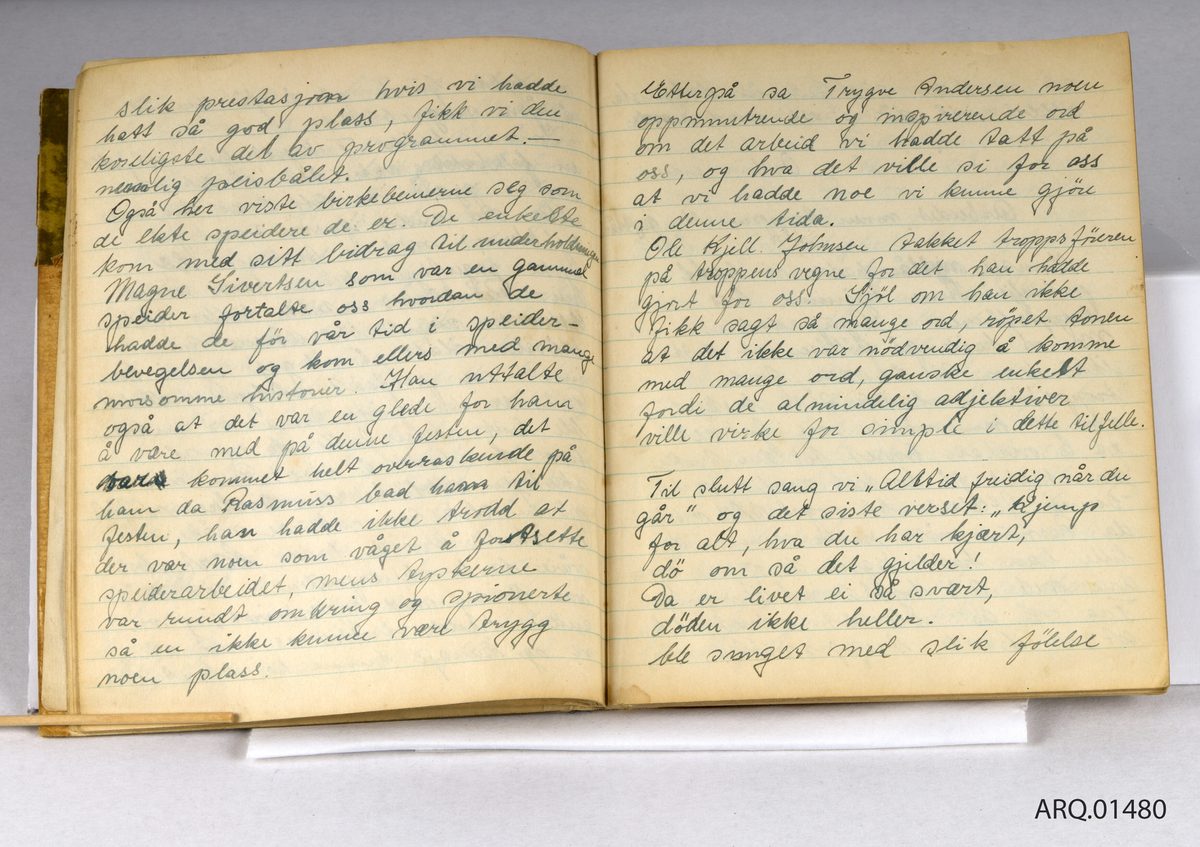 slik prestasjon hvis vi hadde
hatt så god plass, fikk vi den
koseligste del av programmet. —
nemlig peisbålet.
Også her viste birkebeinerne seg som
de ekte speidere de er. De enkelte
kom med sitt bidrag til underholdningen
Magne Sivertsen som var en gammel
speider fortalte oss hvordan de
hadde de för vår tid i speider-
bevegelsen og kom ellers med mange
morsomme historier. Han uttalte
også at det var en glede for ham
å være med på denne festen, det
var kommet helt overraskende på
ham da Rasmuss bad ham til
festen, han hadde ikke trodd at
der var noen som våget å fortsette
speiderarbeidet, mens tyskerne
var rundt omkring og spionerte
så en ikke kunne være trygg
noen plass.
Etterpå sa Trygve Andersen noen
oppmuntrende og inspirerende ord
om det arbeid vi hadde tatt på
oss, og hva det ville si for oss
at vi hadde noe vi kunne gjöre
i denne tida.
Ole Kjell Johnsen takket troppsföreren
på troppens vegne for det han hadde
gjort for oss. Sjöl om han ikke
fikk sagt så mange ord, röpet tonen
at det ikke var nödvendig å komme
med mange ord, ganske enkelt
fordi de almindelig adjektiver
ville virke for simple i dette tilfelle.
Til slutt sang vi „Alltid freidig når du
går" og det siste verset: „Kjemp
for alt, hva du har kjært,
dö om så det gjelder!
Da er livet ei så svært,
döden ikke heller.
ble sunget med slik fölelse
ARQ.01480